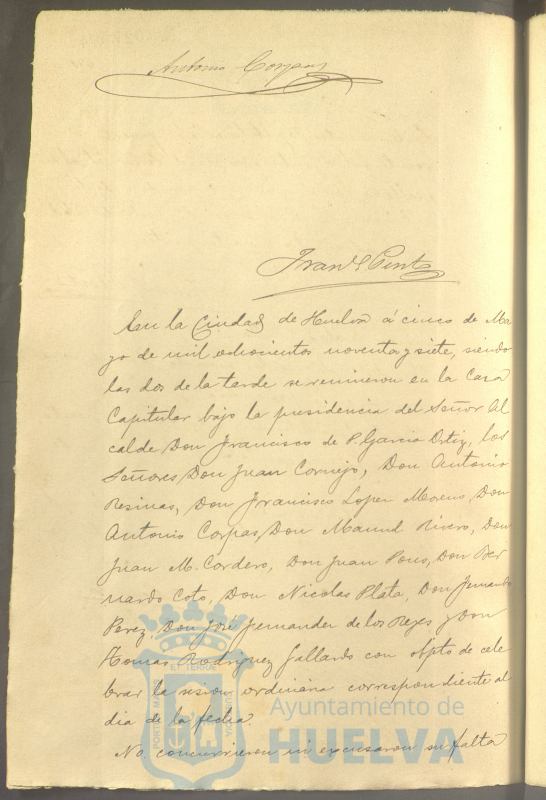 Antonio Corpas
Franco Pinto
En la Ciudad de Huelva á cinco de Ma
yo de mil ochocientos noventa y siete, siendo
las dos de la tarde se reunieron en la Casa
Capitular bajo la presidencia del Señor Al
calde Don Francisco de P. Garcia Ortiz, los
Señores Don Juan Cornejo, Don Antonio
Resinas, Don Francisco Lopez Moreno, Don
Antonio Corpas, Don Manuel Rivero, Don
Juan M. Cordero, Don Juan Pons, Don Ber
nardo Coto, Don Nicolas Plata, Don Fernando
Perez, Don José Fernandez de los Reyes y Don
Tomas Rodriguez Gallardo con objeto de cele
brar la sesion ordinaria correspondiente al
dia de la fecha.
No concurrieron ni excusaron su falta
Ayuntamiento de
HUELVA